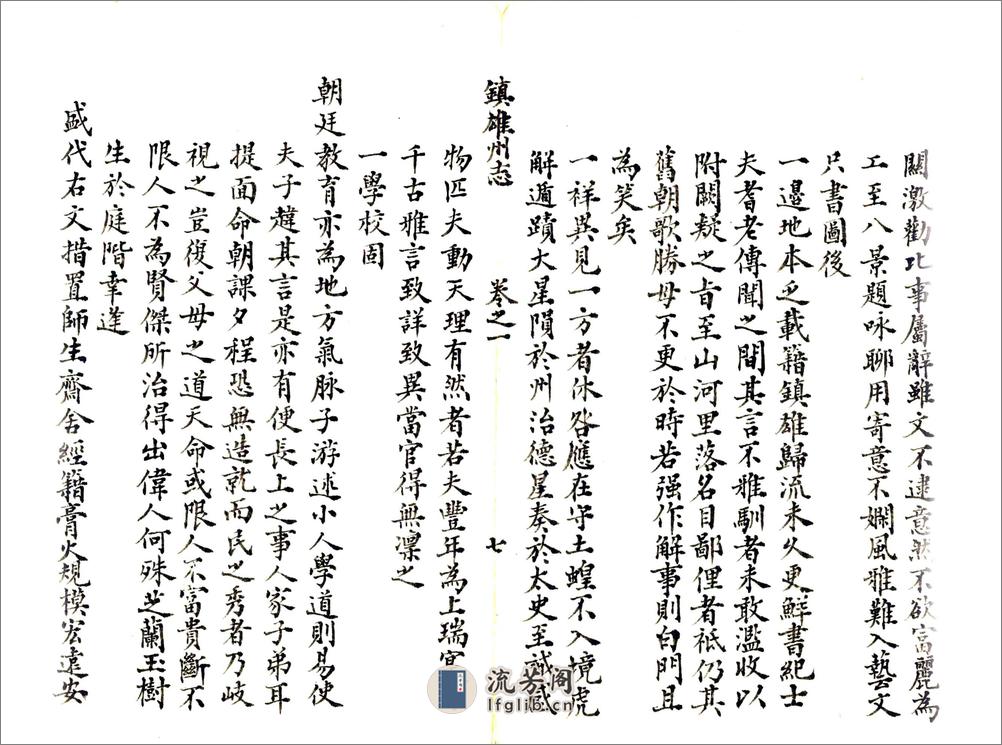 關激勸比事屬辭雖文不逮意然不欲富麗為
工至八景題咏聊用寄意不嫻風雅難入藝文
只書圖後
一邊地本乏載籍鎮雄歸流未久更鮮書紀士
夫耆老傳聞之間其言不雅馴者未敢濫收以
附闕疑之旨至山河里落名目鄙俚者祗仍其
舊朝歌勝母不更於時若强作解事則白門且
為笑矣
一祥異見一方者休咎應在守土蝗不入境虎
解遁蹟大星隕於州治德星奏於太史至誠感
鎮雄州志
卷之一
七
物匹夫動天理有然者若夫豐年為上瑞
千古雅言致詳致異當官得無凜之
一學校固
朝廷教育亦為地方氣脉子游述小人學道則易使
夫子韙其言是亦有使長上之事人家子弟耳
提面命朝課夕程恐無造就而民之秀者乃岐
視之豈復父母之道天命或限人不富貴斷不
限人不為賢傑所治得出偉人何殊芝蘭玉樹
生於庭階幸逢
盛代右文措置師生齋舍經籍膏火規模宏遠安
流芳阁
lfglib.cn